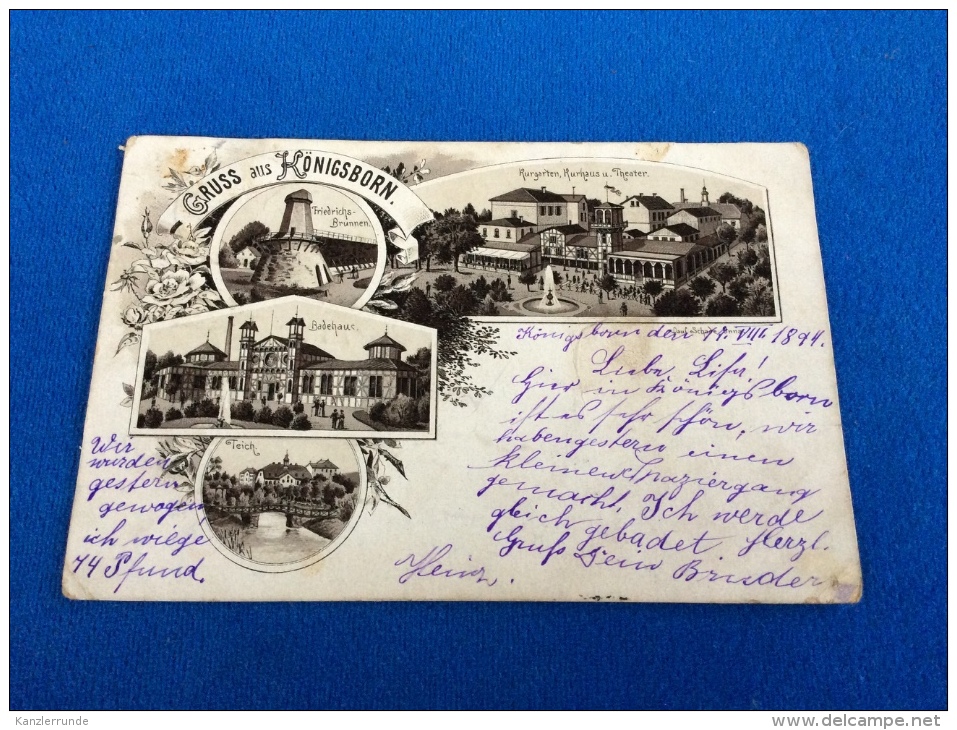 GRUSS aus KÖNIGSBORN.
Friedrichs-
Brunnen.
Kurgarten, Kurhaus u. Theater.
Badehaus.
Teich.
Königsborn den 11. VIII. 1894.
Liebe
Hier in Königsborn
ist es sehr schön, wir
haben gestern einen
kleinen Spaziergang
gemacht. Ich werde
gleich gebadet. Herzl.
Gruß Dein Bruder
Heinz.
Wir
wurden
gestern
gewogen,
ich wiege
74 Pfund.
Kanzlerrunde
http://www.delcampe.net